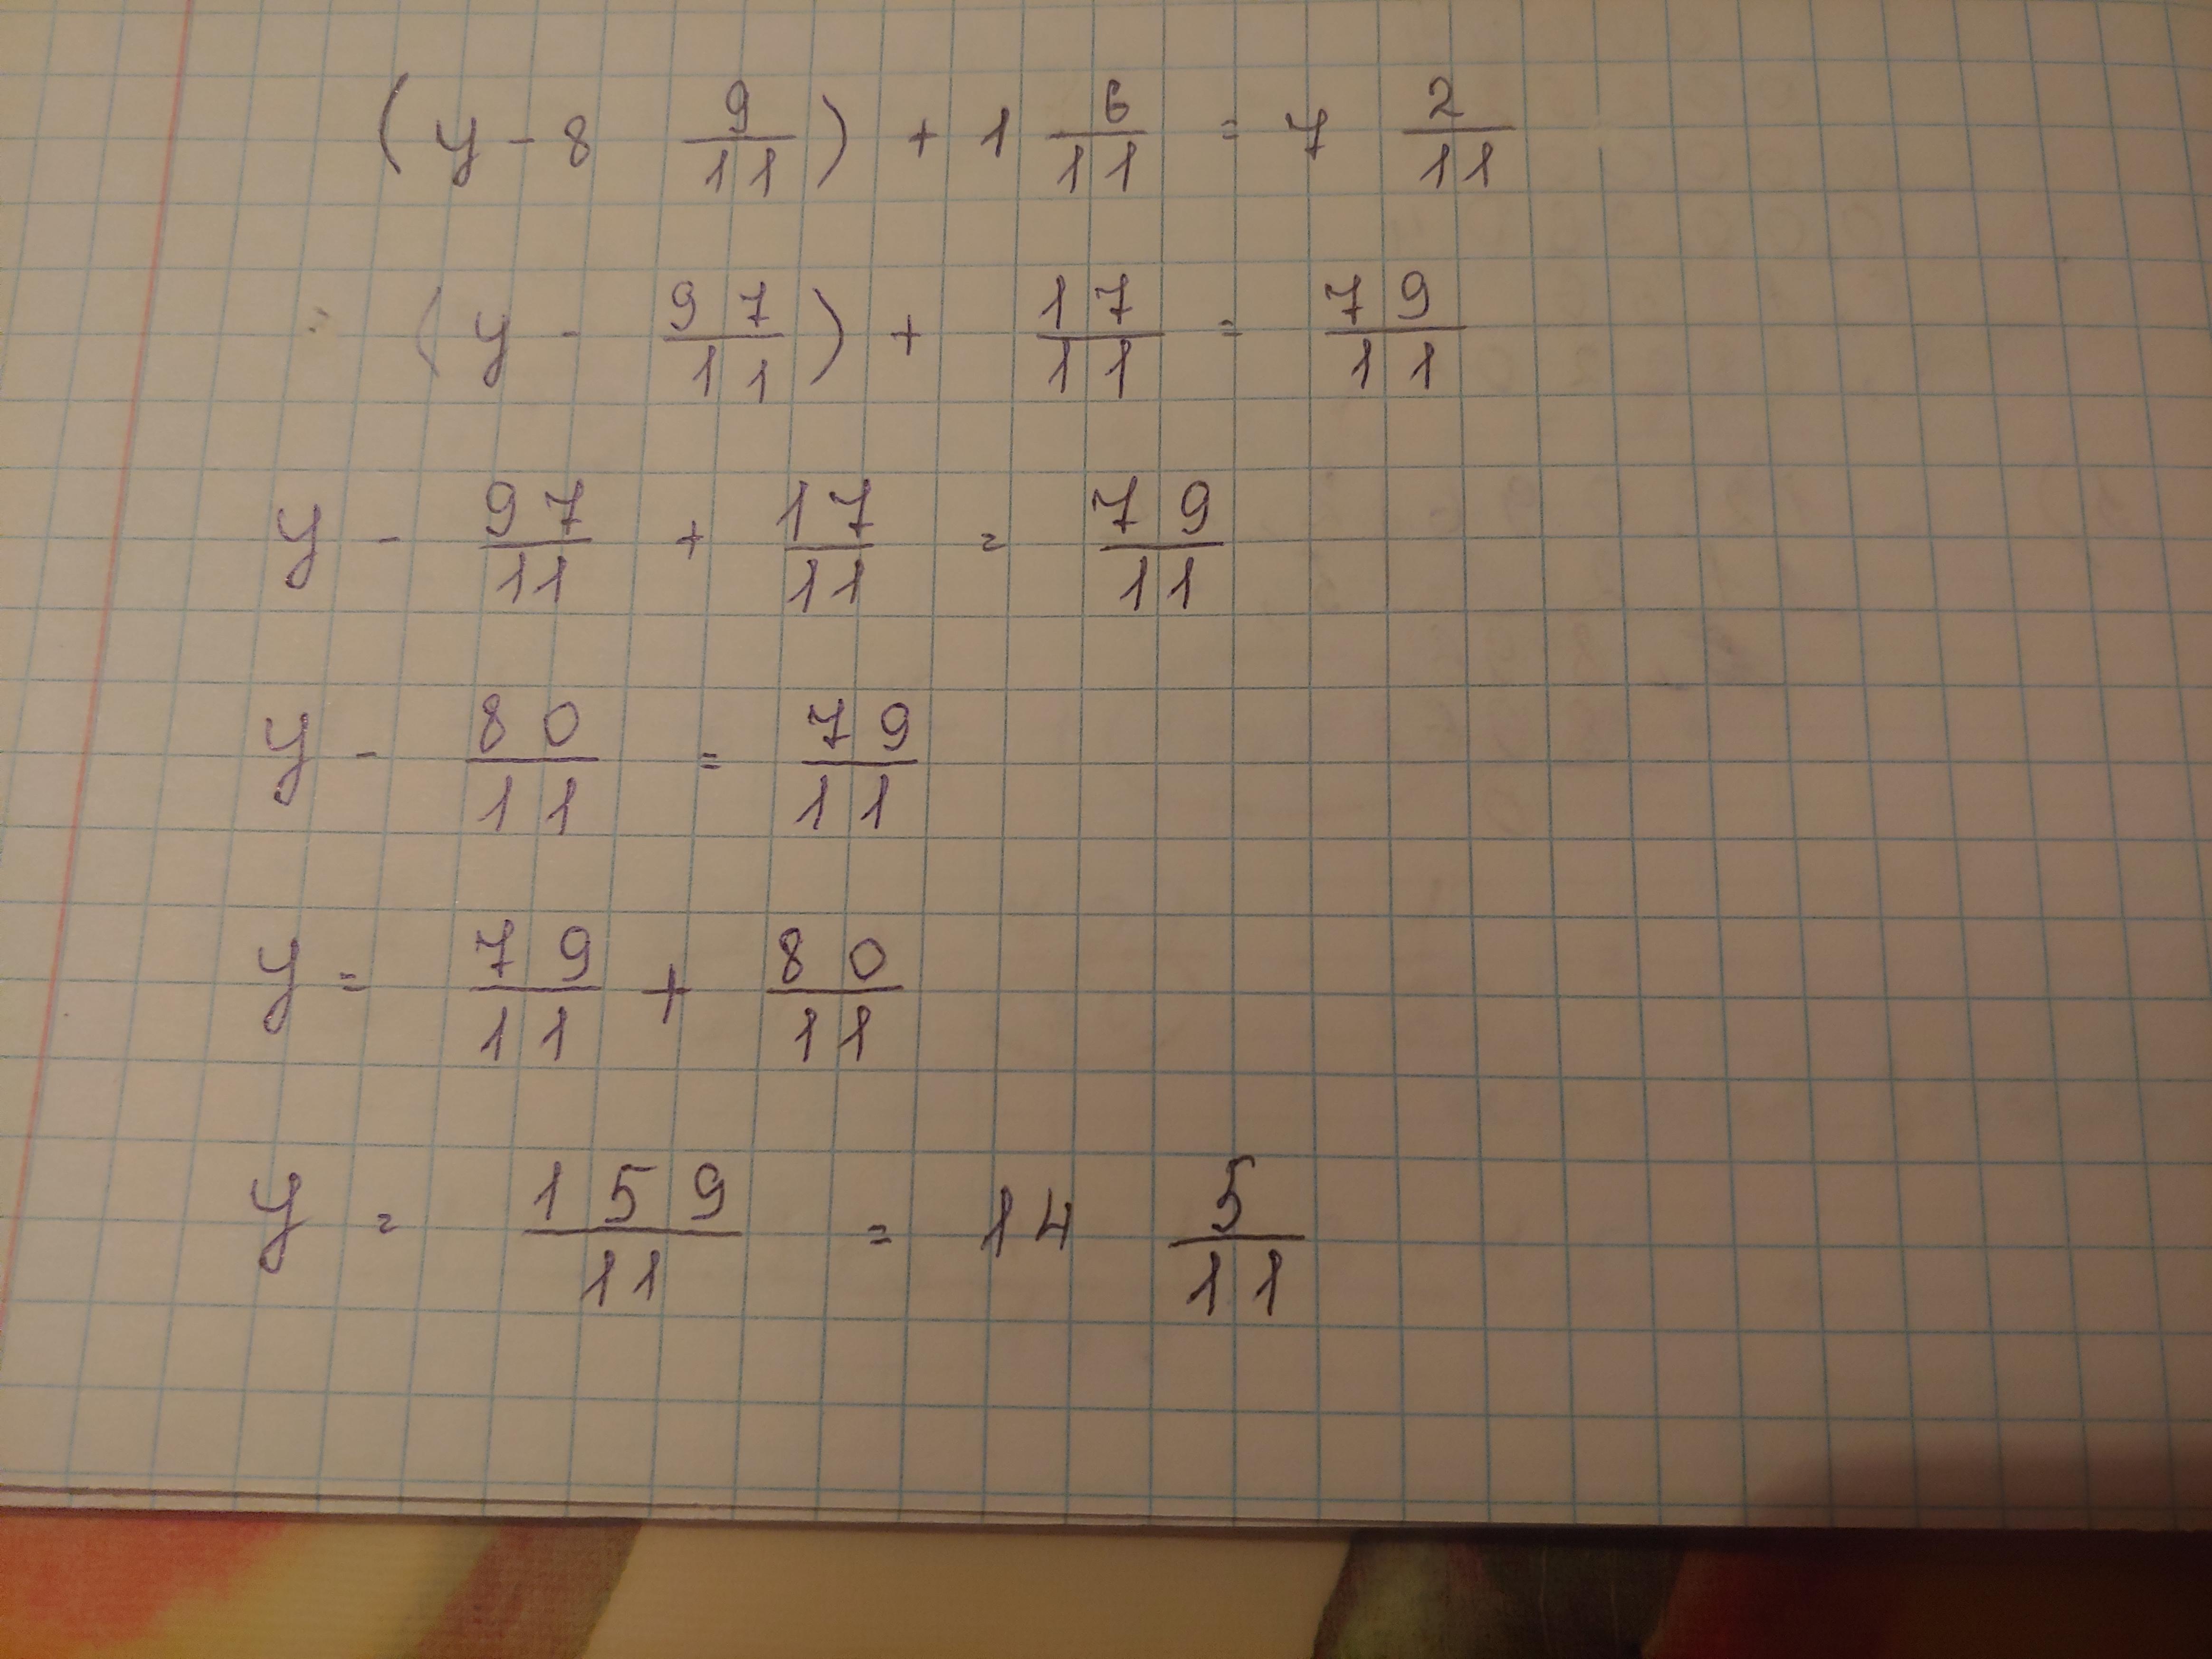 (y - 8 9/11) + 1 6/11 = 7 2/11
(y - 97/11) + 17/11 = 79/11
y - 97/11 + 17/11 = 79/11
y - 80/11 = 79/11
y = 79/11 + 80/11
y = 159/11 = 14 5/11